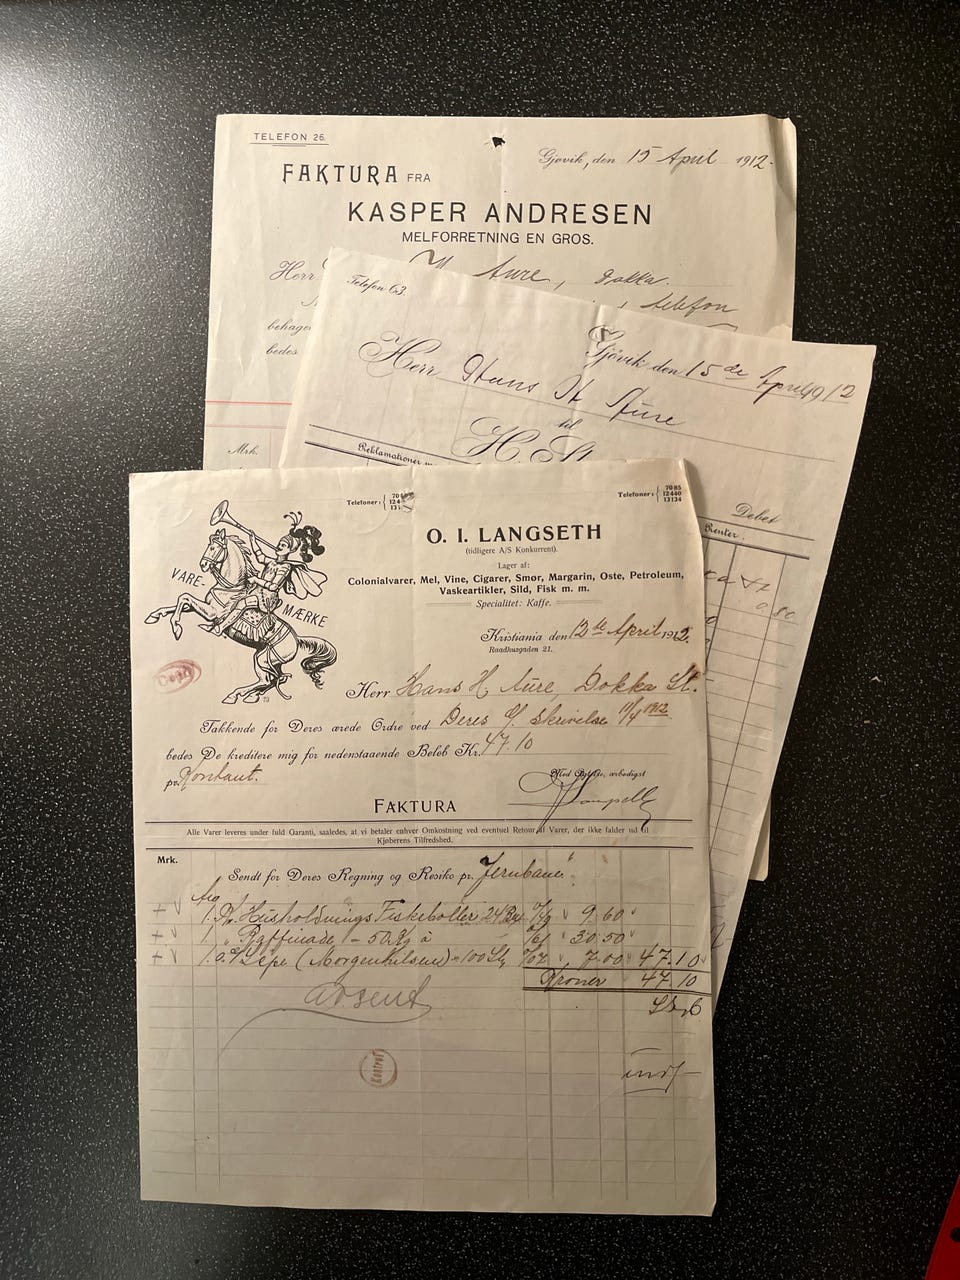 TELEFON 26.
Gjøvik, den 15 April 1912.
FAKTURA FRA
KASPER ANDRESEN
MELFORRETNING EN GROS.
Herr H Aure, Dokka.
telefon
behage
bedes
Mrk.
Telefon 63.
Gjövik den 15 de April 1912
Herr Hans H Aure
til
H. St
Reklamationer
Debet
Renter.
0.80
Telefoner:
Telefoner: 7085
12440
13134
O. I. LANGSETH
(tidligere A/S Konkurrent).
Lager af:
Colonialvarer, Mel, Vine, Cigarer, Smør, Margarin, Oste, Petroleum,
Vaskeartikler, Sild, Fisk m. m.
Specialitet: Kaffe.
VARE-MÆRKE
Kristiania den 12te April 1912.
Raadhusgaden 21.
Herr Hans H. Aure Dokka St.
Takkende for Deres ærede Ordre ved Deres skrivelse 11/4 1912
bedes De kreditere mig for nedenstaaende Beløb Kr. 47.10
pr. Kontant.
Med Agtelse, ærbødigst
FAKTURA
Alle Varer leveres under fuld Garanti, saaledes, at vi betaler enhver Omkostning ved eventuel Retour af Varer, der ikke falder ud til
Kjøberens Tilfredshed.
Mrk.
Sendt for Deres Regning og Resiko pr. Jernbane
1 Ks Husholdnings Fiskeboller 24 9.60
1 " Raffinade - 50 Kg à 30.50
1 Sæpe (Morgenhilsen) - 100 St 7.00 47.10
Kroner 47.10
avsent
Kontrol
indf